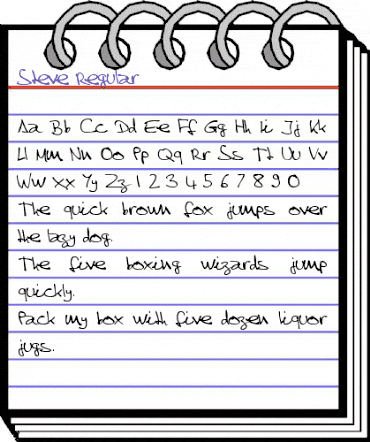 Steve Regular
Aa Bb Cc Dd Ee Ff Gg Hh Ii Jj Kk
Ll Mm Nn Oo Pp Qq Rr Ss Tt Uu Vv
Ww Xx Yy Zz 1 2 3 4 5 6 7 8 9 0
The quick brown fox jumps over
the lazy dog.
The five boxing wizards jump
quickly.
Pack my box with five dozen liquor
jugs.